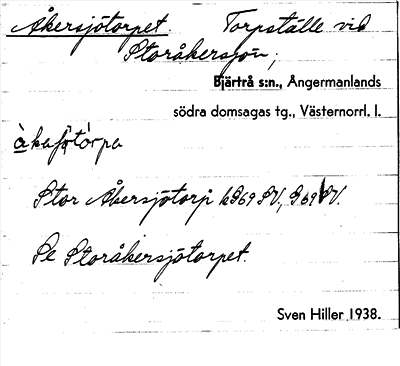 Åkersjötorpet. Torpställe vid
Storåkersjön;
Bjärtrå s:n., Ångermanlands
södra domsagas tg., Västernorrl. l.
Stor Åkersjötorp
Se Storåkersjötorpet.
Sven Hiller 1938.